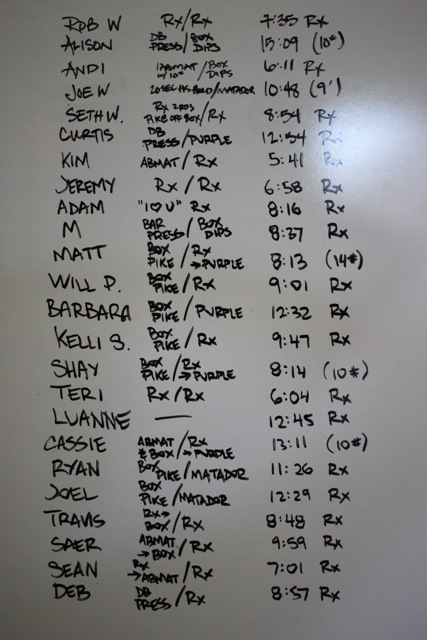 ROB W Rx/Rx 7:35 Rx
ALISON DB PRESS/BOX DIPS 15:09 (10#)
ANDI 1 ABMAT W/10#/BOX DIPS 6:11 Rx
JOE W 20SEC HS HOLD/MATADOR 10:48 (9')
SETH W. Rx PIKE OFF BOX/Rx 8:54 Rx
CURTIS DB PRESS/PURPLE 12:54 Rx
KIM ABMAT/Rx 5:41 Rx
JEREMY Rx/Rx 6:58 Rx
ADAM "I ♡ U" Rx 8:16 Rx
M BAR PRESS/BOX DIPS 8:37 Rx
MATT BOX PIKE/Rx → PURPLE 8:13 (14#)
WILL P. BOX PIKE/Rx 9:01 Rx
BARBARA BOX PIKE/PURPLE 12:32 Rx
KELLI S. BOX PIKE/Rx 9:47 Rx
SHAY BOX PIKE/Rx → PURPLE 8:14 (10#)
TERI Rx/Rx 6:04 Rx
LUANNE — 12:45 Rx
CASSIE ABMAT & BOX/Rx → PURPLE 13:11 (10#)
RYAN BOX PIKE/MATADOR 11:26 Rx
JOEL BOX PIKE/MATADOR 12:29 Rx
TRAVIS Rx → BOX/Rx 8:48 Rx
SAER ABMAT → BOX/Rx 9:59 Rx
SEAN Rx → ABMAT/Rx 7:01 Rx
DEB DB PRESS/Rx 8:57 Rx